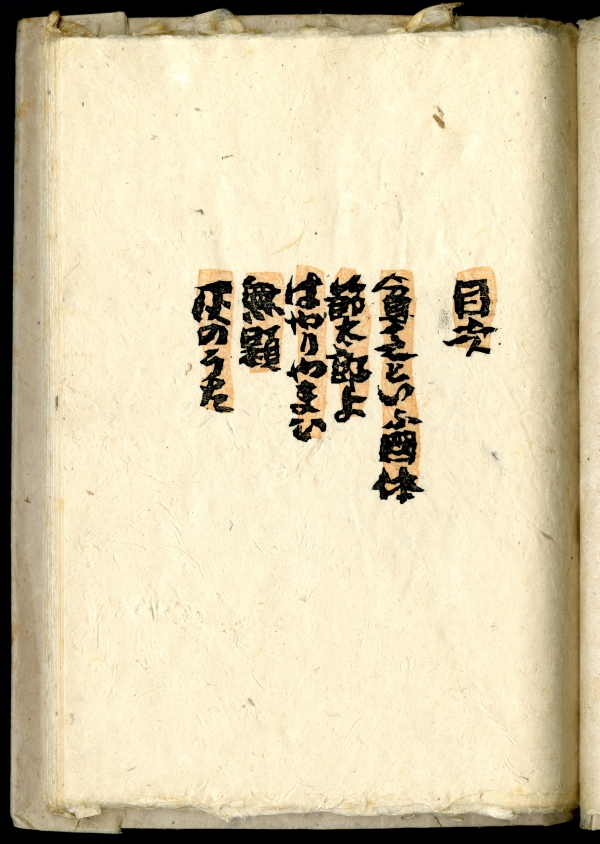 目次
貧乏といふ國体
節太郎よ
はやりやまひ
無題
灰のうた